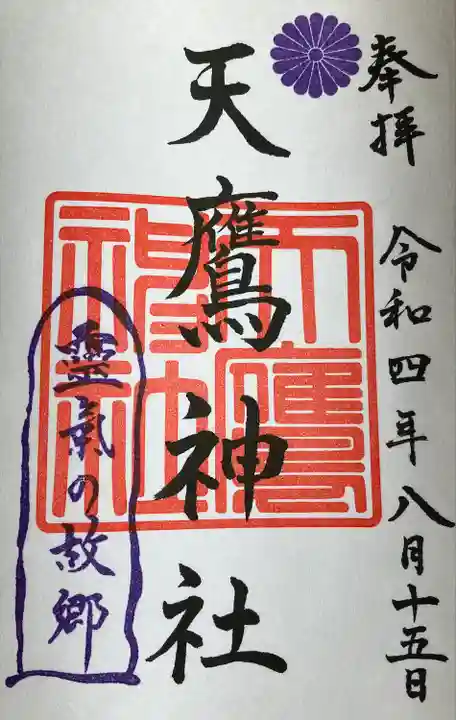 奉拝 令和四年八月十五日
天鷹神社
天鷹神社
靈氣の故郷